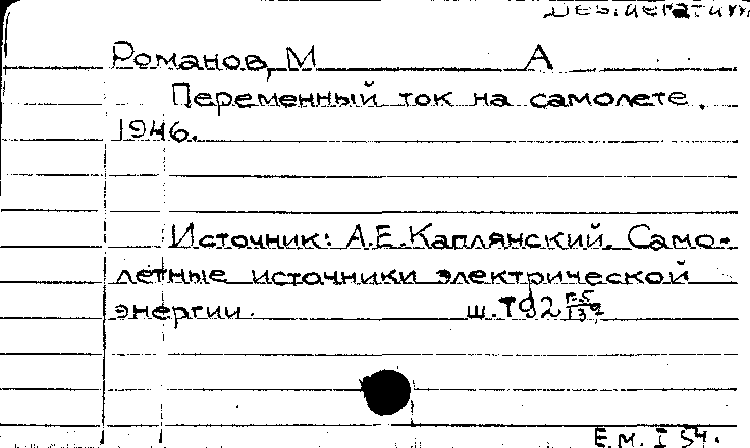 Дезидератим
Романов, М А
Переменный ток на самолете.
1946.
Источник: А.Е.Каплянский. Само-
летные источники электрической
энергии. ш. Т92
Е.М. I 54.